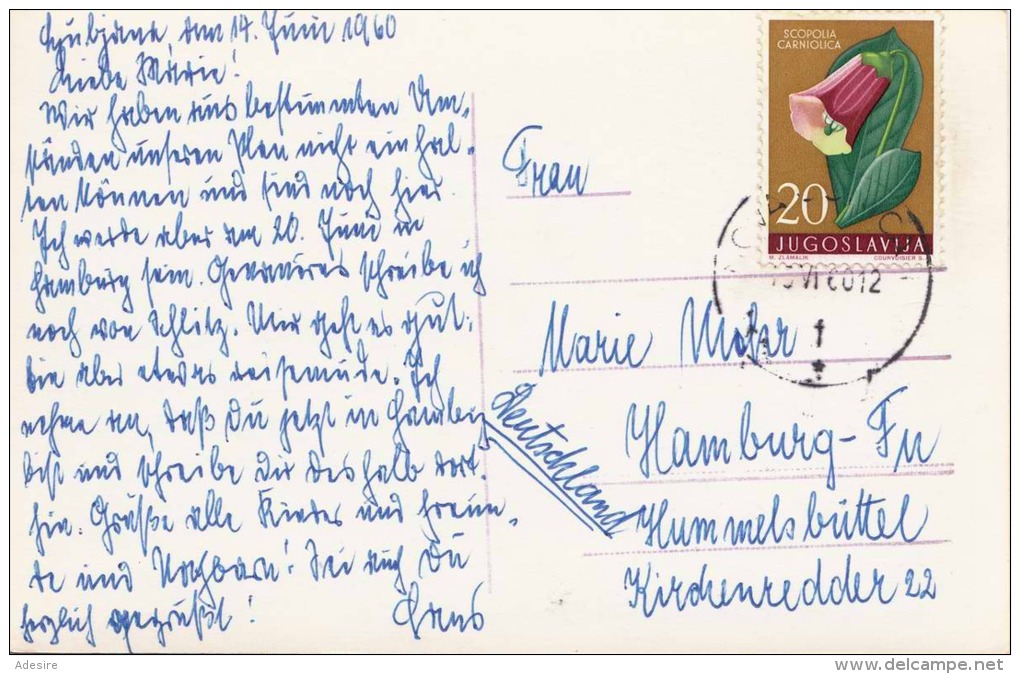 Ljubljana, am 14. Juni 1960
Liebe Marie!
Wir haben uns bestimmten Um-
ständen unseren Plan nicht einhal-
ten können und sind noch hier.
Ich werde aber am 20. Juni in
Hamburg sein. Genaueres schreibe ich
noch von Schlitz. Mir geht es gut.
bin aber etwas reisemüde. Ich
nehme an, daß Du jetzt in Hamburg
bist und schreibe dir deshalb dort
hin. Grüße alle Kinder und Freun-
de und Nachbarn! Sei auch Du
herzlich gegrüßt!
Hans
Frau
Marie Mohr
Deutschland
Hamburg-Fu
Hummelsbüttel
Kirchenredder 22
SCOPOLIA
CARNIOLICA
20
JUGOSLAVIJA
M. ZLAMALIK COURVOISIER S.
VI 60 12
Adesire
www.delcampe.net